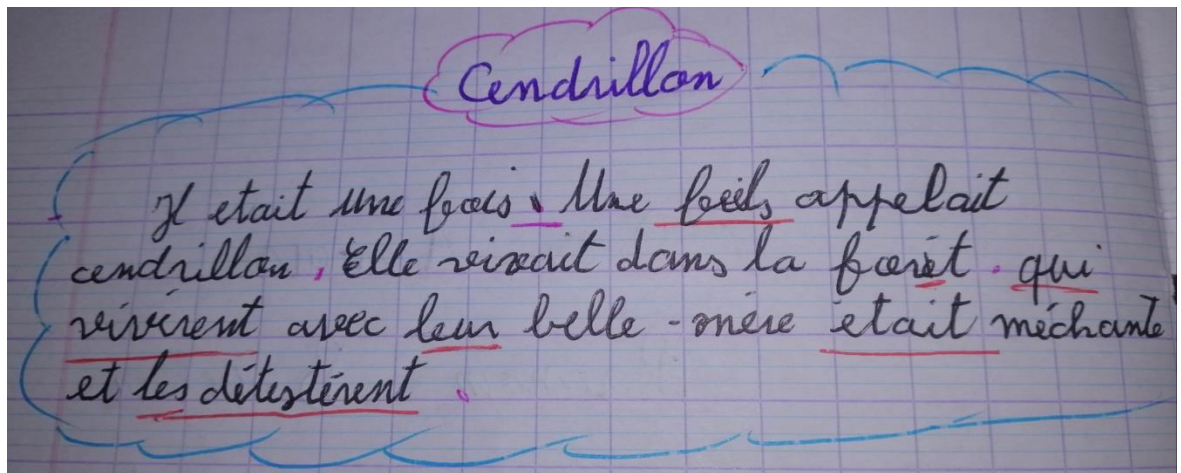 Cendrillon
Il etait une fois. Une feils appelait
cendrillon, Elle vivait dans la forêt. qui
vivèrent avec leur belle-mère était méchante
et les détestèrent.